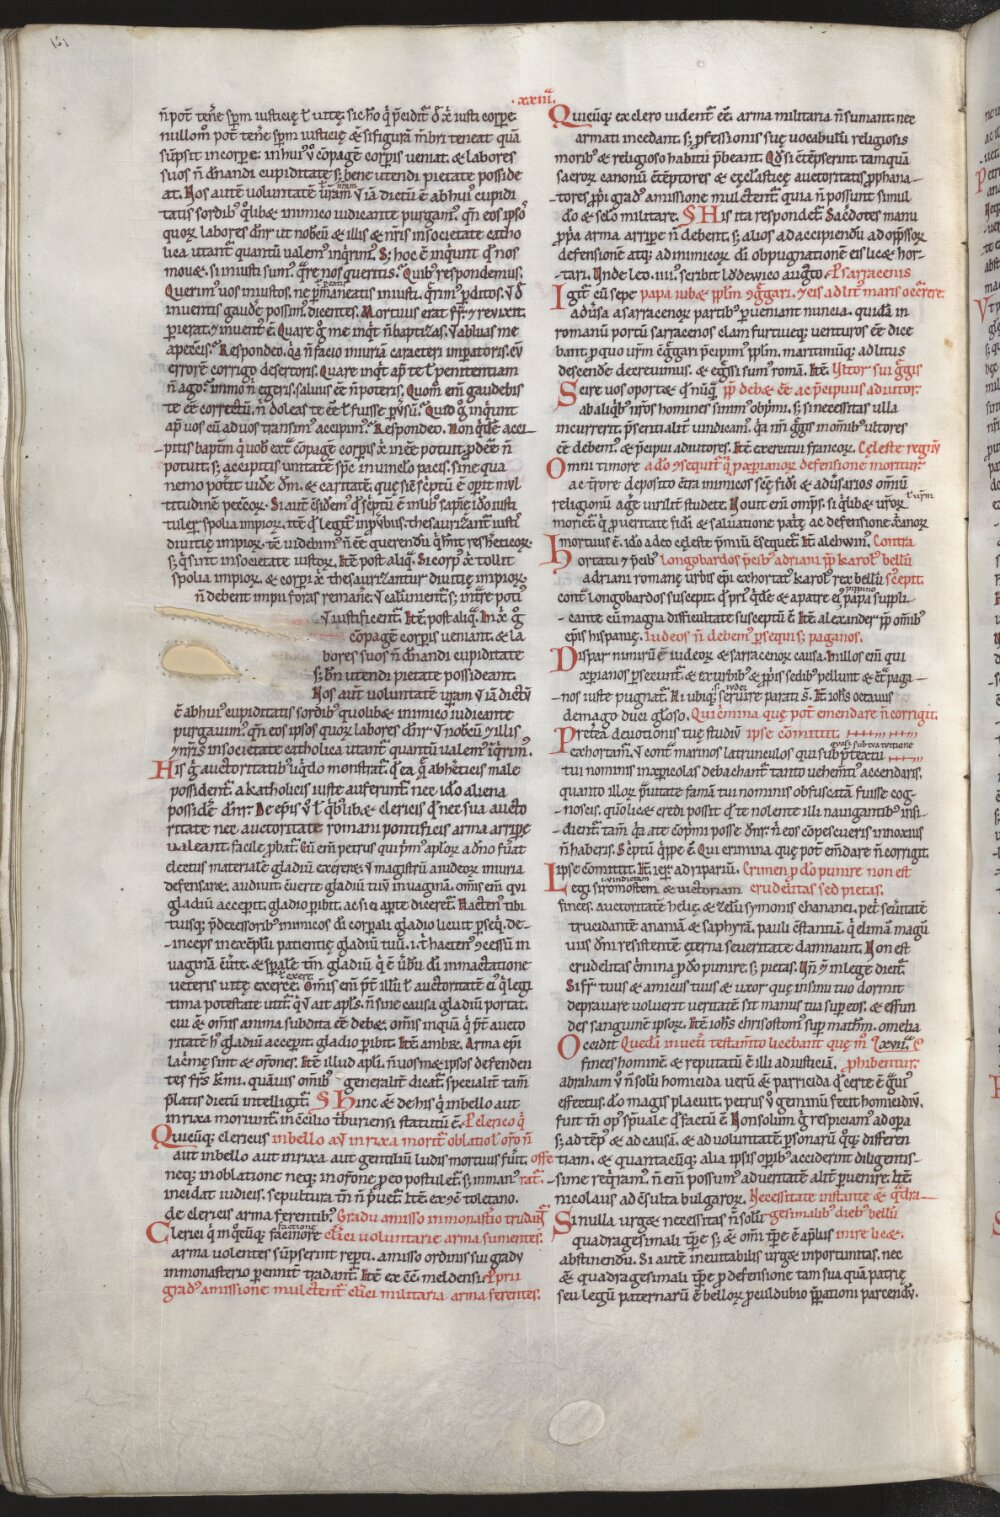 121
.xxiii.
n̄ pot̄ tenē sp̄m iusticię ł uitę. sic h̊o q̇ p̄cidit̄ d̄ x̄ iusti corpe.
nullom̊ pot̄ tenē sp̄m iusticię & si figurā m̄bri teneat quā
sūpsit in corpe. in hui' ů cōpagē corpis ueniat. & labores
suos n̄ dn̄andi cupiditate s; bene utendi pietate posside
at. Nos autē uoluntatē ur̄am ut iā dictū ē ab hui' cupidi
tatis sordib' q̊libet inimico iudicante purgam'. qn̄ eos ipso'
quoꝝ labores dn̄r ut nob̄cū & illis & nr̄is in societate catho
lica utant̄ quantū ualem' inq̇rim'. S; hoc ē inq̇unt qd̄ nos
mouet. si iniusti sum'. q̄re nos queritis. Quib' respondemus.
Querim' uos iniustos. ne p̄maneatis iniusti. q̄rim' p̄ditos. ut d̄
inuentis gaudē possim'. dicentes. Mortuus erat fr̄ & reuixit.
pierat & inuent' ē. Quare g̊ me inq̇t n̄ baptizas. ut abluas me
a peccis. Respondeo. q̇a n̄ facio iniuriā caracteri impatoris. cū
errorē corrigo desertoris. Quare inq̇t ap̄ te ł penitentiam
n̄ ago. immo n̄ egeris. saluus ēē n̄ poteris. Quom̊ em̄ gaudebis
te ēē correctū. n̄ doleas te ēē ł fuisse pūsū. Quid g̊ inquunt
ap̄ uos cū ad uos transim' accipim'. Respondeo. Non q̇dē acci
pitis baptm̄ q̇ uob̄ extͣ cōpagē corpis x̄ in ēē potuit. p̄dēē n̄
potuit. s; accipitis unitatē sp̄c in uinclo pacis. sine qua
nemo potit uidē dm̄. & caritatē. que sic̄ sc̄ptū ē opit mul
titudinē pecc̄oꝝ. Si aut̄ ēsidem' qd̄ sc̄ptū ē in lib' sapīe. ido iusti
tuler̄ spolia impioꝝ. itē qd̄ legit̄ in puerb'. thesaurizant̄ iusti'
diuitię impioꝝ. tē uidebim' n̄ ēē querendū q̇ hn̄t res hereticoꝝ.
s; q̇ sint in societate iustoꝝ. Itē post aliq̇. Si corp' x̄ tollit
spolia impioꝝ. & corpi x̄ thesaurizantur diuitię impioꝝ.
n̄ debent impii foras remanē. ut calūnient̄. s; intrē poti'
ut iustificent̄. Itē. post aliq̇. In x̄ g̊
cōpagē corpis ueniant. & la
bores suos n̄ dn̄andi cupiditate
s; bn̄ utendi pietate possideant.
Nos aut̄ uoluntatē ur̄am ut iā dictū
ē ab hui' cupiditatis sordib' quolibet inimico iudicante
purgauim'. qn̄ eos ipsos quoꝝ labores dn̄r ut nobcū & illis
& nr̄is in societate catholica utant̄ quantū ualem' iq̇rim'.
His g̊ auctoritatib' liq̇do monstrat̄ qd̄ ea q̄ ab h̄eticis male
possident̄ a katholicis iuste auferunt̄. nec ido aliena
possidē dn̄r. De ep̄is ů ł q̇b'libet clericis qd̄ nec sua aucto
ritate nec auctoritate romani pontificis arma arripe
ualeant. facile pbat̄. Cū em̄ petrus qui pm' aploꝝ a dn̄o fūat
electus materialē gladiū exereret ut magistrū a iudeoꝝ iniuria
defensaret. audiuit. Cuerte gladiū tuū in uaginā. Om̄is em̄ qui
gladiū accepit. gladio pibit. ac si ei apte diceret. Hacten' tibi
tuisq; p̄decessorib' inimicos di corpali gladio licuit pseq̇. de
inceps in exēplū patientię gladiū tuū. i. t̓ hacten' ɔcessū in
uaginā ēūte. & spalē tm̄ gladiū q̇ ē ūbū di in mactatione
ueteris uitę exere. Om̄is em̄ p̄t illū ł auctoritatē ei' q̇ legi
tima potestate utit̄. q̇ ut ait apl̄s. n̄ sine causa gladiū portat.
cui & om̄is anima subdita ēē debet. om̄is inquā q̇ p̄t aucto
ritatē h' gladiū accepit. gladio pibit. Itē ambr̄. Arma ep̄i
lac̄mę sint & or̄ones. Itē illud apl̄i. n̄ uosmet ipsos defenden
tes fr̄s kmī. quāuis om̄ib' generalit̄ dicat̄. specialit̄ tam̄
p̄latis dictū intelligit̄. § Hinc & de his q̇ in bello aut
in rixa moriunt̄. in cēcilio t̄buriensi statutū ē. De clerico q̇
Quicūq; clericus in bello aut in rixa morit̄ oblatio ł or̄o n̄
aut in bello aut in rixa aut gentiliū ludis mortuus fūit. offe
neq; in oblatione neq; in or̄one p eo postulet̄. s; in man' rat̄.
incidat iudicis. sepultura tn̄ n̄ puet̄. Itē ex ɔc̄ toletano.
de clericis arma ferentib'. Gradu amisso in monast̄io trudunt̄
Clerici q̇ in q̊cūq; facinore clēici uoluntarie arma sumentes.
arma uolentes sūpserint repti. amisso ordinis sui gradu
in monasterio pennit̄ tradant̄. Itē ex cc̄ meldensi. Pprii
grad' amissione mulctent̄ clēici militaria arma ferentes.
Quicūq; ex clero uident̄ ēē. arma militaria n̄ sumant. nec
armati incedant. s; pfessionis suę uocabulū religiosis
morib' & religioso habitu p̄beant. Qd̄ si ɔtēpserint. tamquā
sacroꝝ canonū ɔtēptores & eccl̄asticę auctoritatis pphana
tores. ppͥi grad' amissione mulctent̄. quia n̄ possunt simul
do & sc̄lo militare. § His ita respondet̄. Sac̄dotes manu
ppa arma arripe n̄ debent. s; alios ad accipiendū ad opp̄ssoꝝ
defensionē atq; ad inimicoꝝ di obpugnationē eis licet hor
tari. Unde leo .iiii. scribit lodewico aug'to. P sarracenis
Igit̄ cū sepe papa iubet pplm̄ ɔggari. & eis ad lit' maris occ̄rere.
aduͥsa a sarracenoꝝ partib' pueniant nuncia. quidā in
romanū portū sarracenos clam furtiueq; uenturos ēē dice
bant. p quo ur̄m cgg̈ari p̄cipim' pplm̄. maritimūq; ad litus
descendē decreuimus. & egssi sum' romā. Itē. Ultor sui g̈gis
Scire uos oportet qd̄ nūq̄ pp̄ debet ēē ac p̄cipuus adiutor.
ab aliq̇b' nr̄os homines sinim' obp̄mi. s; si necessitas ulla
incurrerit. p̄sentialit̄ uindicam'. q̇a nr̄i g̈gis in om̄ib' ultores
ēē debem'. & p̄cipui adiutores. Itē exercitui francoꝝ. Celeste regnū
Omni timore a do ɔsequit̄ q̇ p xp̄ianoꝝ defensione morit̄.
ac t̄rore deposito ɔtra inimicos sc̄ę fidei & aduͥsarios om̄iū
religionū agē uirilit̄ studete. Nouit em̄ om̄ps. si q̇libet ur̄oꝝ
moriet̄. qd̄ p ueritate fidei & saluatione patͥę ac defensione xp̄ianoꝝ
mortuus ē. ido a deo celeste p̄miū ɔsequet̄. Itē alchwin'. Contra
Hortatu & p̄cib' longobardos p̄cib' adriani pp̄ karol' bellū
adriani romanę urbis ep̄i exhortat' karol' rex bellū sc̄epit.
contͣ longobardos suscepit. qd̄ pri' q̇dē & a patre ei' papa suppli
cante cū magna difficultate susceptū ē. Itē alexander pp̄ om̄ib'
ep̄is hispanię. Iudeos n̄ debem' psequi. s; paganos.
Dispar nimirū ē iudeoꝝ & sarracenoꝝ causa. In illos em̄ qui
xp̄ianos psecunt̄. & ex urbib' & ppͥis sedib' pellunt & ɔtͣ paga
nos iuste pugnat̄. Hi ubiq; seruire parati s̄. Itē ioh̄s octauus
de mago duci gl̄oso. Qui c̄mina que pot̄ emendare n̄ corrigit.
Pret̄ea deuotionis tuę studiū ipse cōmittit.
exhortam'. ut contͣ marinos latrunculos qui sub p̄textu
tui nominis in xp̄icolas debachant̄ tanto uehem̄ti' accendaris.
quanto illoꝝ p̄uitate famā tui nominis obfuscatā fuisse cog
noscis. qm̄ licet credi possit qd̄ te nolente illi nauigantib' insi
dient̄. tam̄ q̇a a te cōpͥmi posse dn̄r. n̄ eos cōpescueris innoxius
n̄ haberis. Sc̄ptū q̇ppe ē. Qui crimina que pot̄ em̄dare n̄ corrigit.
ipse cōmittit. Itē ier' ad ripariū. Crimen p do punire non est
Legi siromosten & uictoriam crudelitas sed pietas.
finees. auctoritatē helię. & zelū symonis chananei. petͥ seūitatē
trucidantē ananiā & saphyrā. pauli ɔstantiā. q̇ elimā magū
uiis dn̄i resistentē ęterna seueritate damnauit. Non est
crudelitas c̄mina p do punire. s; pietas. Un̄ & in lege dicit̄.
Si fr̄ tuus & amicus tuus & uxor que in sinu tuo dormit
deprauare uoluerit ueritatē. sit manus tua sup eos. & effun
des sanguinē ipsoꝝ. Itē ioh̄s chrisostom' sup math̄m. omelia
Occidit Quedā in uet̄i testam̄to licebant que m̊ .xvii. P
finees hominē & reputatū ē illi ad iusticiā. phibentur.
abraham ů n̄ solū homicida uerū & parricida qd̄ certe ē g̈ui'
effectus. do magis placuit. petrus ů geminū fecit homicidiū.
fuit tn̄ op' spūale qd̄ factū ē. Non solum g̊ respiciam' ad opa
s; ad tēp' & ad causā. & ad uoluntatē. psonarū q̊q; differen
tiam. & quantacūq; alia ipsis opib' acciderint. diligentis
sime req̇ram'. n̄ em̄ possum' ad ueritatē alit̄ puenire. Itē
nicolaus ad cōsulta bulgaroꝝ. Necessitate instante & q̈dra
Si nulla urget necessitas n̄ solū gesimalib' dieb' bellū
quadragesimali tp̄e s; & om̄i tp̄e ē a pliis inire licet.
abstinendū. Si autē ineuitabilis urget inportunitas. nec
& quadragesimali tp̄e p defensione tam sua quā patrię
seu legū paternarū ē belloꝝ pculdubio pp̄ationi parcendū.